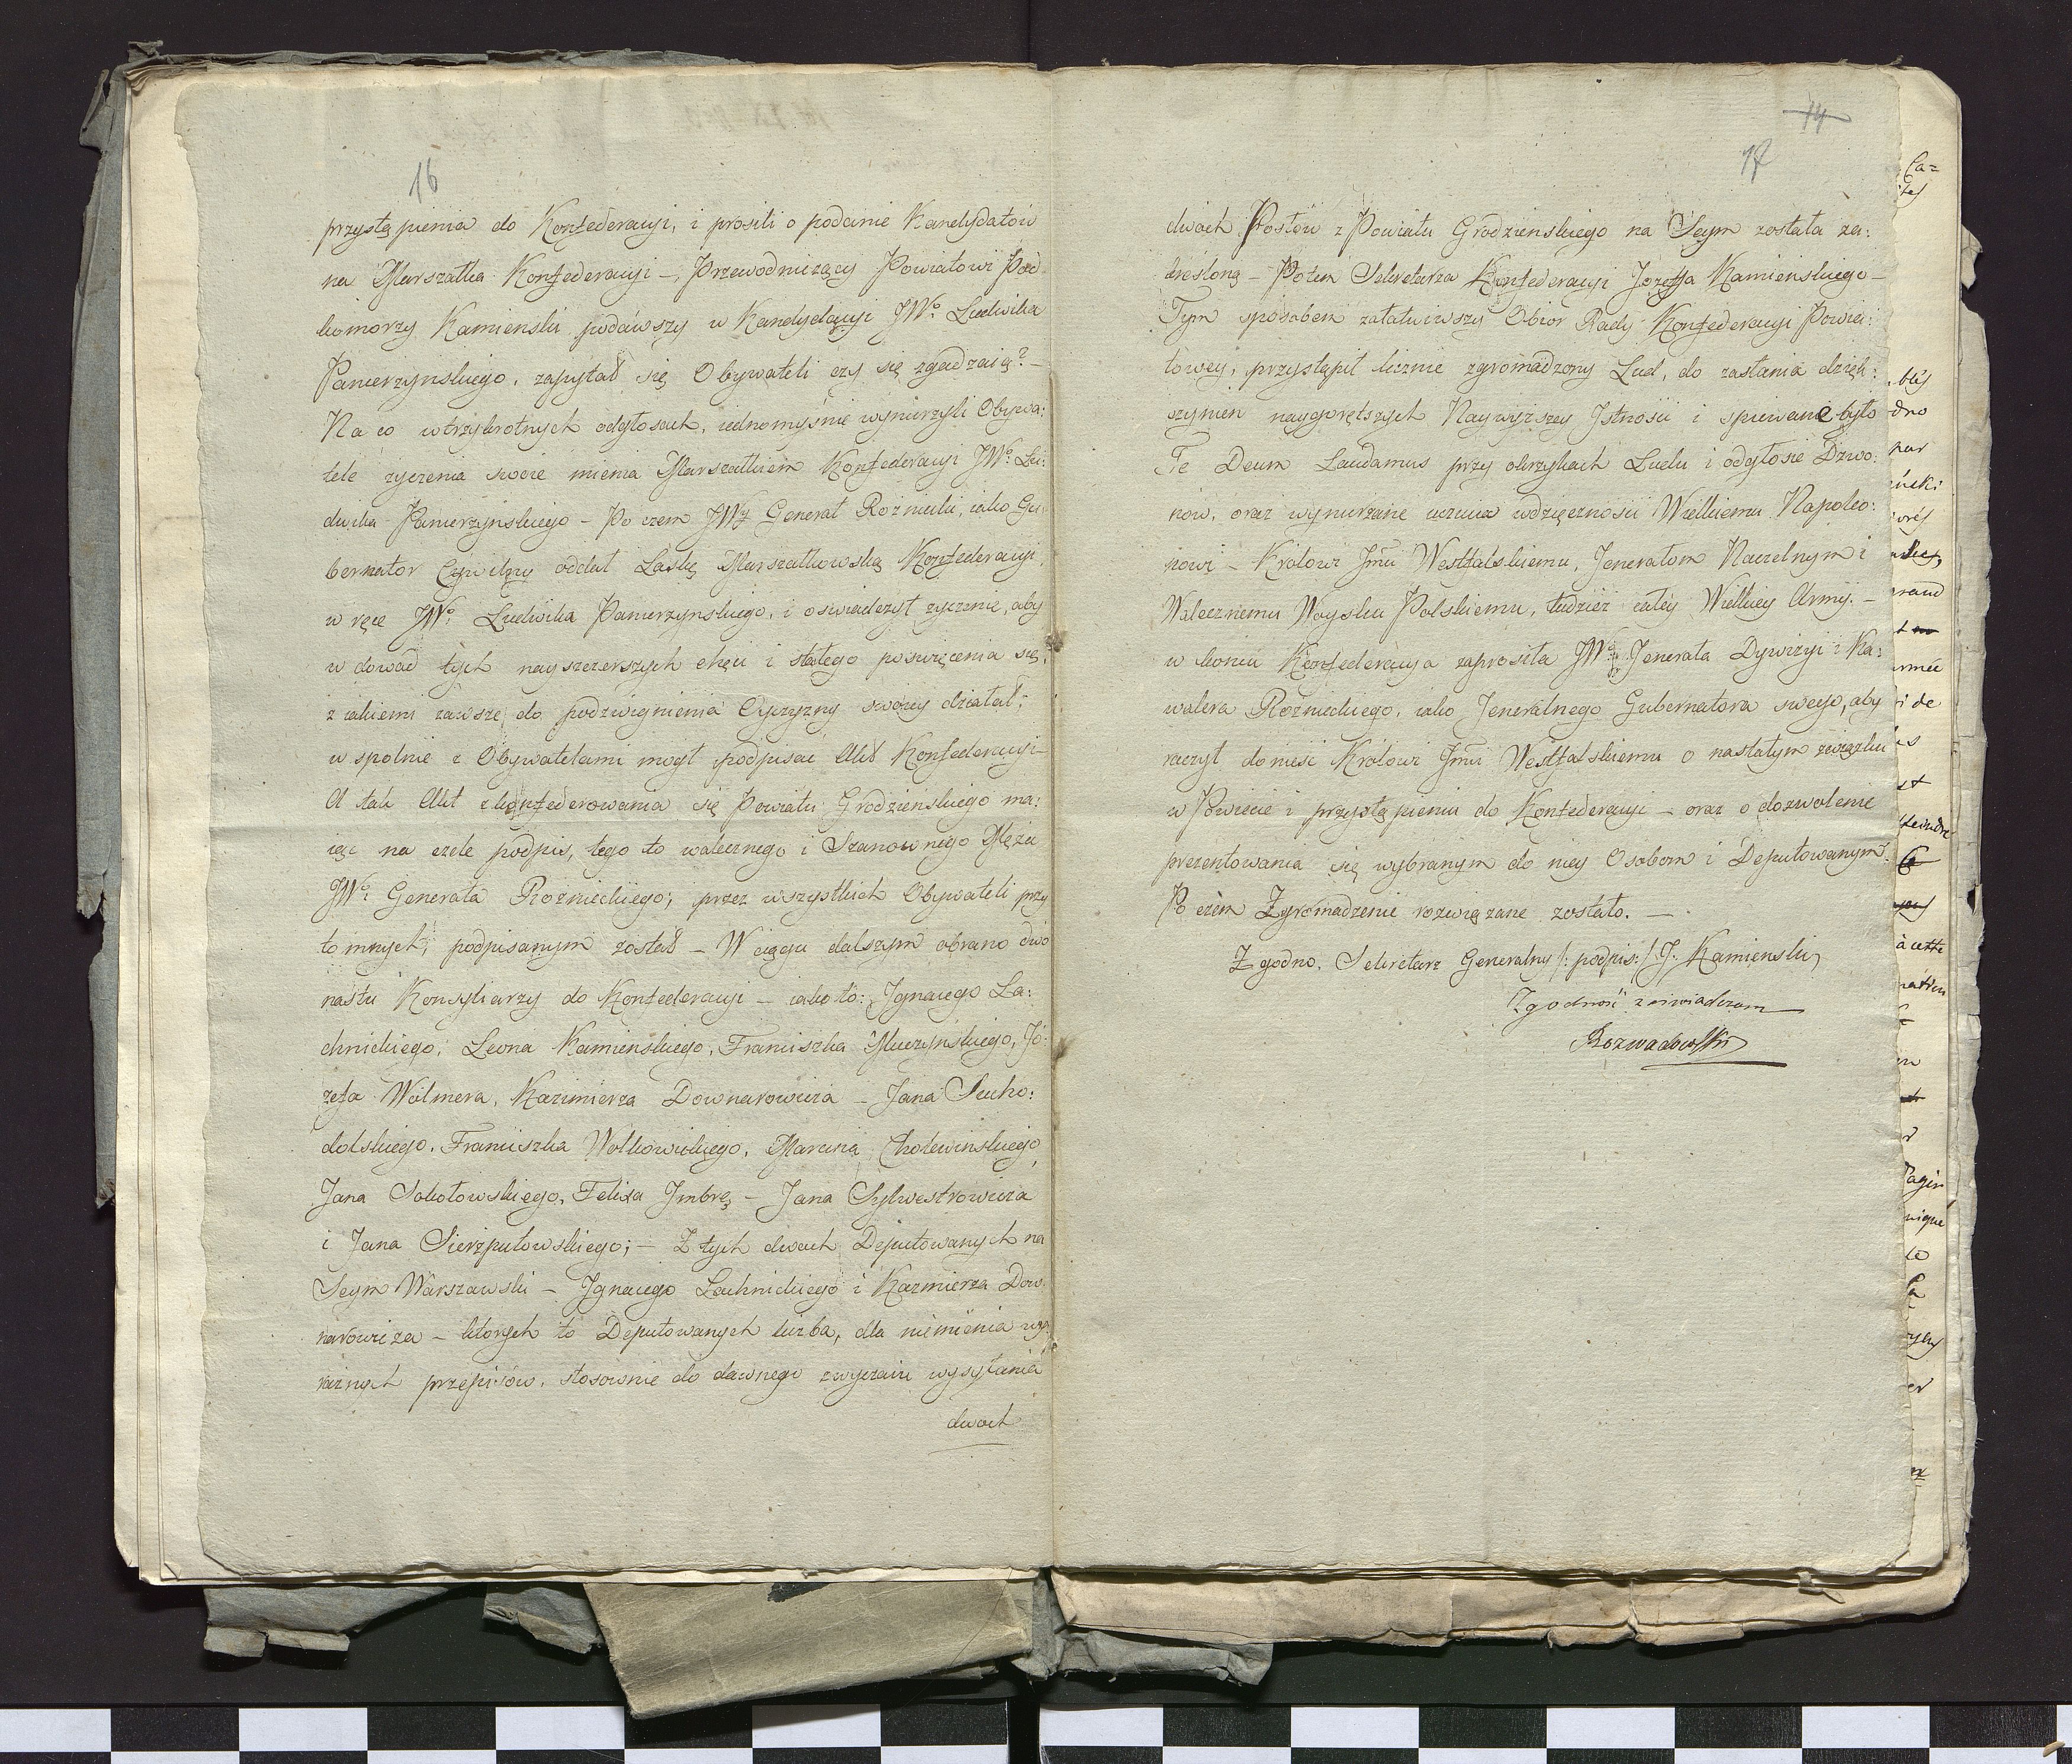 16
przystąpienia do Konfederacyi, i prosili o podanie Kandydatów
na Marszałka Konfederacyi – Przewodniczący Powiatowi Pod
komorzy Kamienski podawszy w Kandydacyi JWo. Ludwika
Pancerzynskiego, zapytał się Obywateli czy się zgadzaią? –
Na co w trzykrotnych odgłosach, iednomyśnie wynurzyli Obywa:
tele zyczenia swoie miania Marszałkiem Konfederacyi JWo: Lu:
dwika Pancerzynskiego – Po czem JWy Generał Rożniecki, iako Gu:
bernator Cywilny oddał Laskę Marszałkowską Konfederacyi,
w ręce JWo. Ludwika Pancerzynskiego, i oswiadczył zyczenie, aby
w dowod tych nayszczerszych chęci i stałego poswięcenia się,
z iakiemi zawsze do podzwignienia Oyczyzny swoiey działał;
wspolnie z Obywatelami mogł podpisac Akt Konfederacyi –
A tak Akt zkonfederowania się Powiatu Grodzienskiego ma:
iąc na czele podpis, tego to walecznego i Szanownego Męża
JWo: Generała Rożnieckiego; przez wszystkich Obywateli przy
tomnych, podpisanym został – W ciągu dalszym obrano dwo
nastu Konsyliarzy do Konfederacyi – iako to: Jgnacego La:
chnickiego, Leona Kamienskiego, Franciszka Muczynskiego, Jó:
zefa Wolmera, Kazimierza Downarowicza – Jana Sucho:
dolskiego, Franciszka Wołkowickiego, Marcina Cholewinskiego,
Jana Sokołowskiego, Felixa Jmbrę – Jana Sylwestrowicza
i Jana Sierzputowskiego; – Z tych dwoch Deputowanych na
Seym Warszawski – Jgnacego Lachnickiego i Kazmierza Dow:
narowicza – ktorych to Deputowanych liczba, dla niemienia wy:
raznych przepisów, stosownie do dawnego zwyczaiu wysyłania
dwoch
14
17
dwóch Posłów z Powiatu Grodzienskiego na Seym została za:
kresloną – Potem Sekretarza Konfederacyi Jozeffa Kamienskiego –
Tym sposobem załatwiwszy Obior Rady Konfederacyi Powia:
towey, przystąpił licznie zgromadzony Lud, do zasłania dzięk:
czynien naygorętszych Naywyzszey Jstności i spiewane było
Te Deum Laudamus przy okrzykach Ludu i odgłosie Dzwo:
now, oraz wynurzane uczucia wdzięcznosci Wielkiemu Napoleo:
nowi – Krolowi Jmci Westfalskiemu, Jenerałom Naczelnym i
Walecznemu Woysku Polskiemu, tudzież całey Wielkiey Armij. –
w koncu Konfederacya zaprosiła JWo Jenerała Dywizyi i Ka:
walera Rożnieckiego, iako Jeneralnego Gubernatora swego, aby
raczył doniesc Krolowi Jmci Westfalskiemu o nastałym związku
w Powiecie i przystąpieniu do Konfederacyi – oraz o dozwolenie
prezentowania się wybranym do niey Osobom i Deputowanym.
Po czém Zgromadzenie rozwiązane zostało. –
Zgodno. Sekretarz Generalny /: podpis: / J. Kamienski
Zgodność zaswiadczam
Rozwadowski